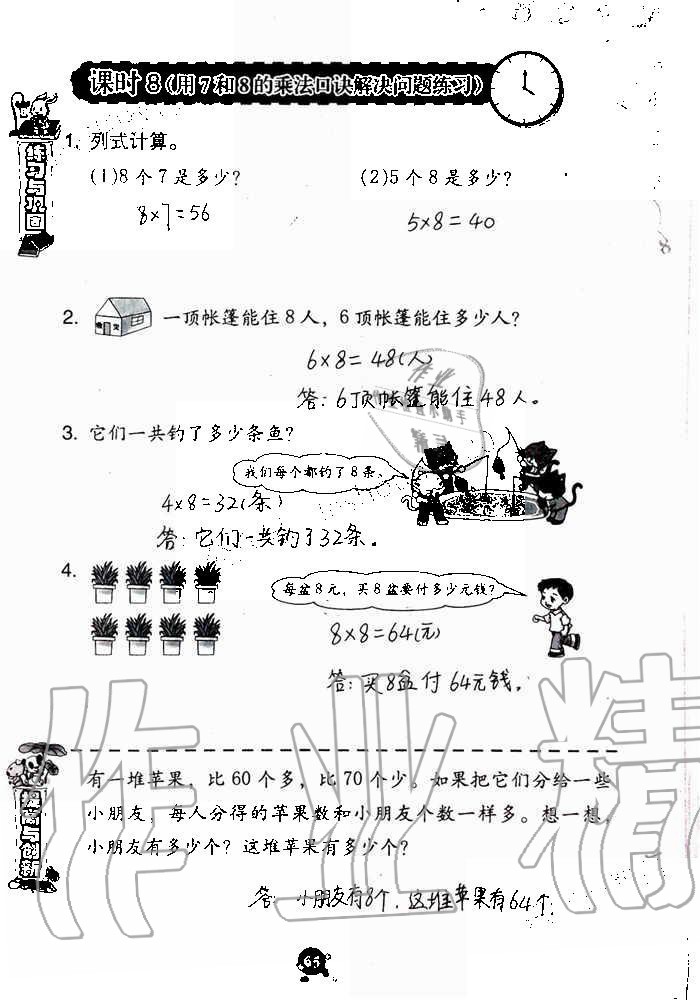 课时8(用7和8的乘法口诀解决问题练习)
练习与巩固
1. 列式计算。
(1)8个7是多少? (2)5个8是多少?
8×7=56 5×8=40
2. 一顶帐篷能住8人，6顶帐篷能住多少人?
6×8=48(人)
答:6顶帐篷能住48人。
3. 它们一共钓了多少条鱼?
我们每个都钓了8条。
4×8=32(条)
答:它们一共钓了32条。
4.
每盆8元，买8盆要付多少元钱?
8×8=64(元)
答:买8盆付64元钱。
提高与创新
有一堆苹果，比60个多，比70个少。如果把它们分给一些
小朋友，每人分得的苹果数和小朋友个数一样多。想一想，
小朋友有多少个? 这堆苹果有多少个?
答:小朋友有8个,这堆苹果有64个.
65
作业精